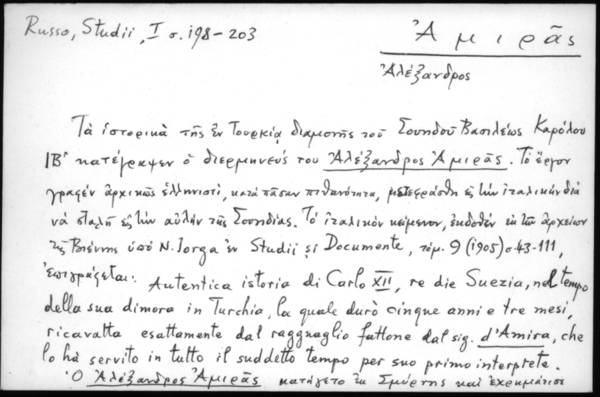 Russo, Studii, I σ. 198-203
Ἀμιρᾶς
Ἀλέξανδρος
Τὰ ἱστορικὰ τῆς ἐν Τουρκίᾳ διαμονῆς τοῦ Σουηδοῦ Βασιλέως Καρόλου
ΙΒ' κατέγραψεν ὁ διερμηνεύς του Ἀλέξανδρος Ἀμιρᾶς. Τὸ ἔργον
γραφὲν ἀρχικῶς ἑλληνιστί, κατὰ πᾶσαν πιθανότητα, μετεφράσθη εἰς τὴν ἰταλικὴν διὰ
νὰ σταλῇ εἰς τὴν αὐλὴν τῆς Σουηδίας. Τὸ ἰταλικὸν κείμενον, ἐκδοθὲν ἐκ τῶν ἀρχείων
τῆς Βιέννης ὑπὸ N. Iorga ἐν Studii și Documente, τόμ. 9 (1905) σ 43-111,
ἐπιγράφεται: Autentica istoria di Carlo XII, re die Suezia, nel tempo
della sua dimora in Turchia, la quale durò cinque anni e tre mesi,
ricavatta esattamente dal ragguaglio fattone dal sig. d'Amira, che
lo hà servito in tutto il suddetto tempo per suo primo interprete.
Ὁ Ἀλέξανδρος Ἀμιρᾶς κατήγετο ἐκ Σμύρνης καὶ ἐχρημάτισε